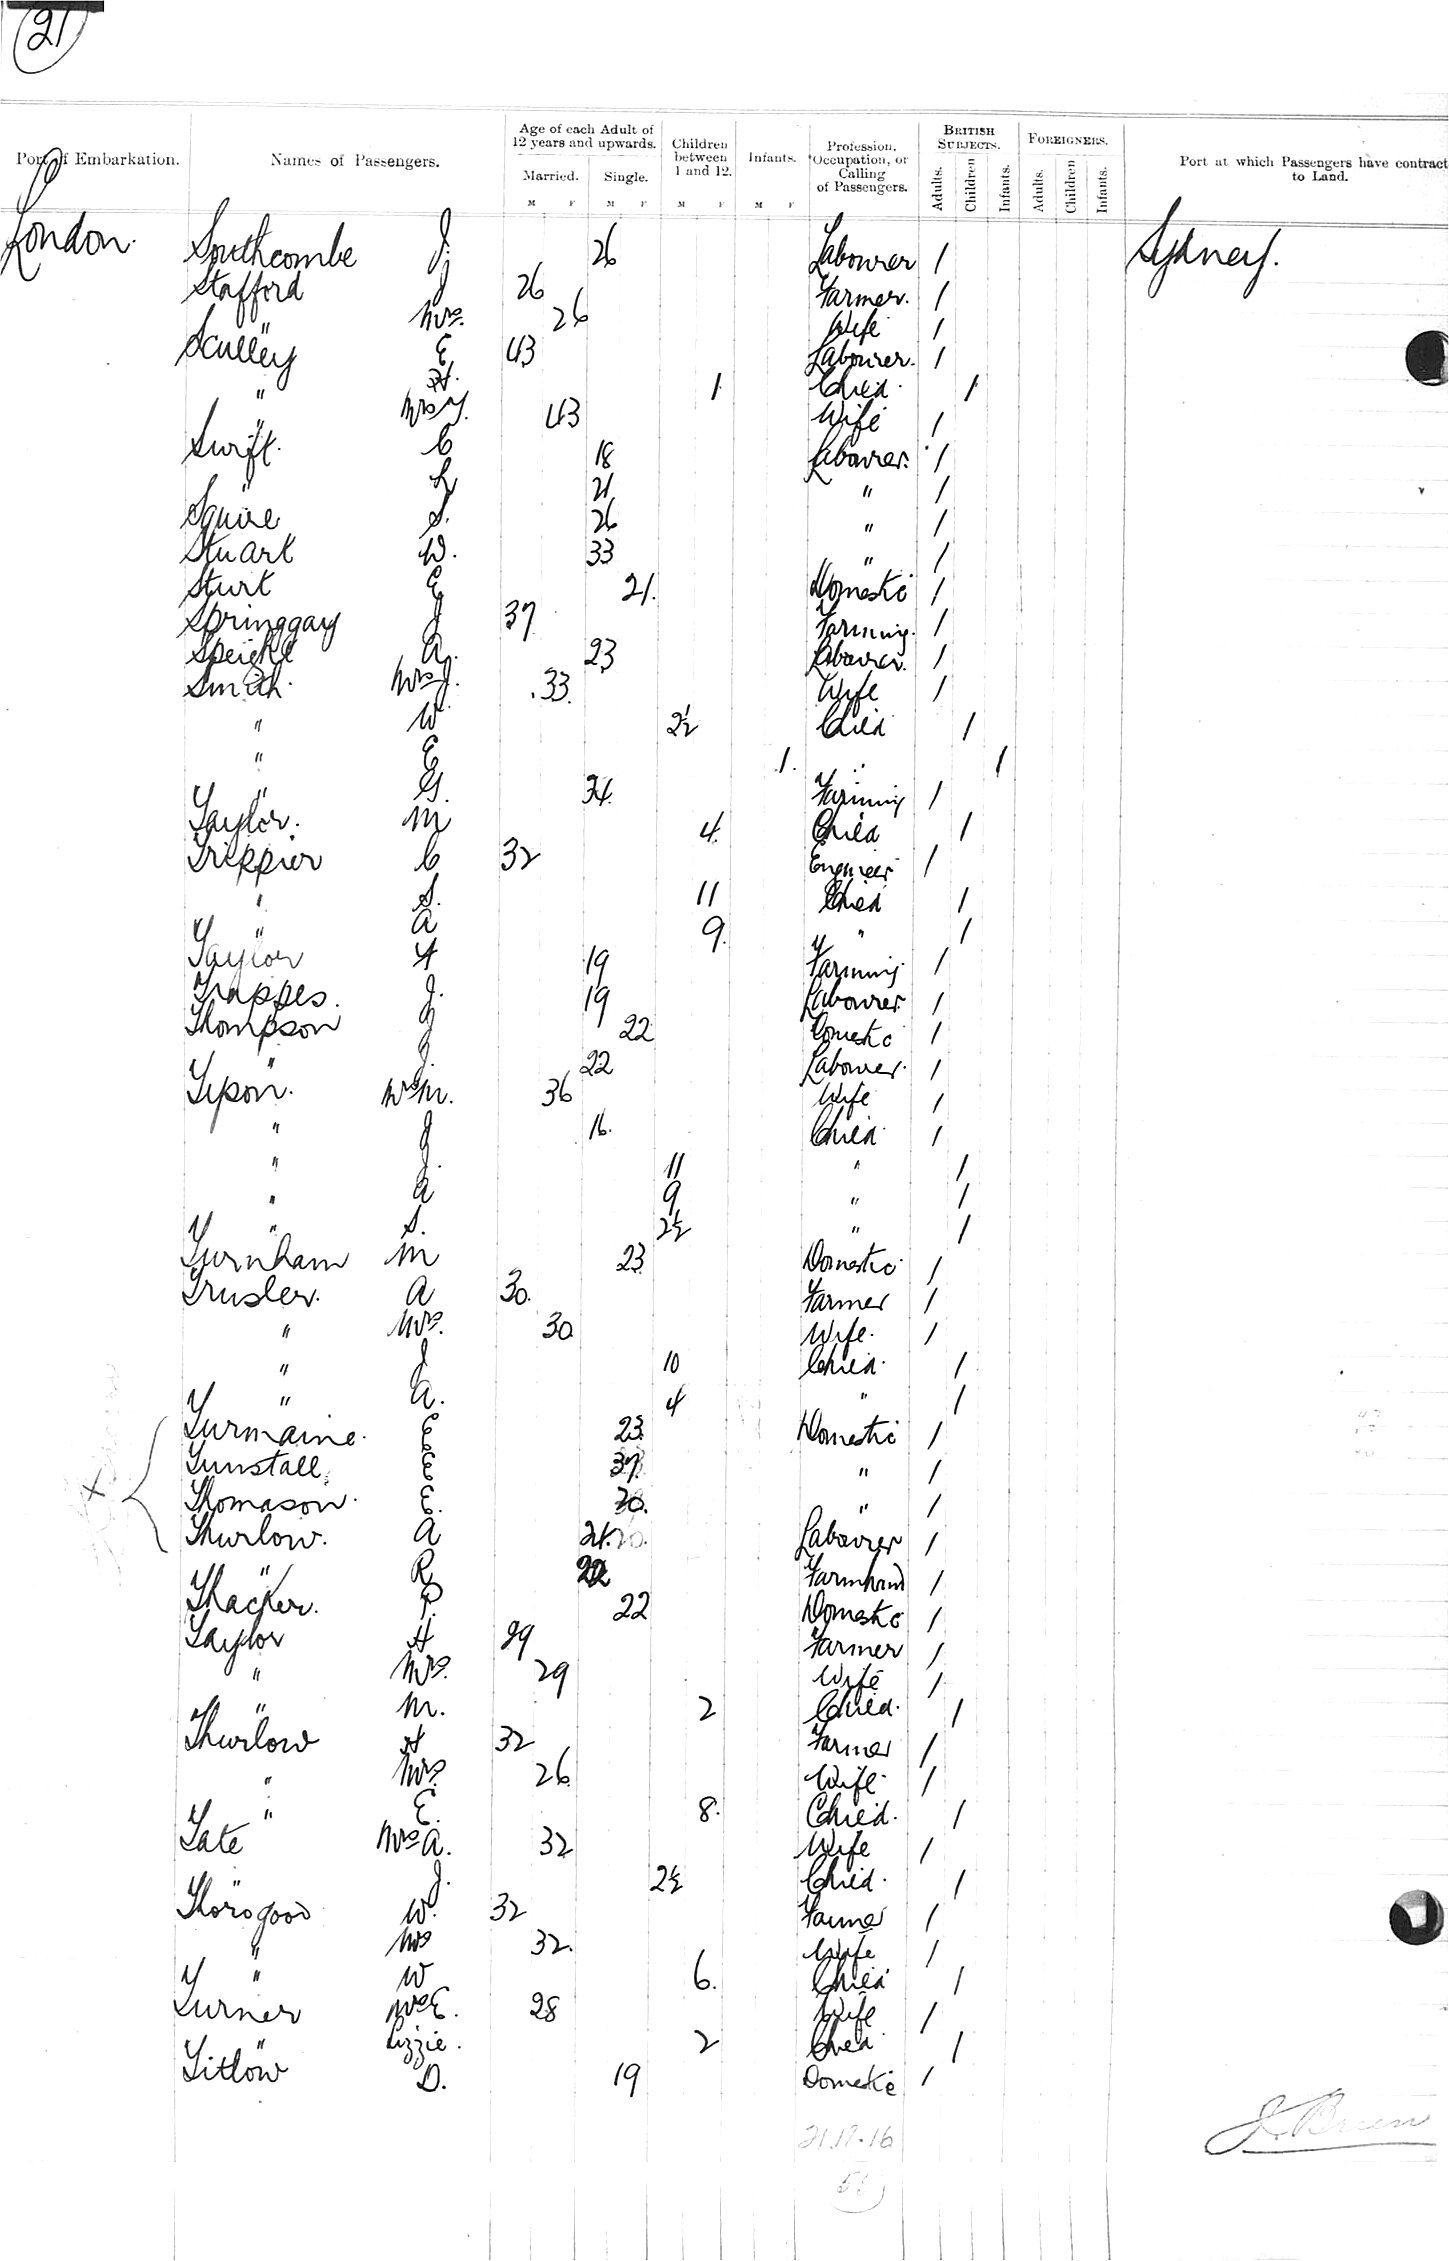 21
Port of Embarkation. Names of Passengers. Age of each Adult of 12 years and upwards. Married. Single. Children between 1 and 12. Infants. Profession, Occupation, or Calling of Passengers. British Subjects. Adults. Children Infants. Foreigners. Adults. Children Infants. Port at which Passengers have contract to Land.
M F M F M F M F
London. Southcombe J. 26 Labourer 1 Sydney.
Stafford J 26 Farmer. 1
" Mrs. 26 Wife 1
Sculley E 43 Labourer. 1
" H. 1 Child. 1
" Mrs M. 43 Wife 1
Swift. C 18 Labourer. 1
" L 21 " 1
Squire S. 26 " 1
Stuart W. 33 " 1
Sturt E 21. Domestic 1
Springgay J 37 Farming. 1
Speight A. 23 Labourer. 1
Smith. Mrs J. 33. Wife 1
" W 2½ Child 1
" E 1. " 1
" G. 34. Farming 1
Taylor. M 4. Child 1
Trippier C 32 Engineer 1
" S. 11 Child 1
" A 9. " 1
Taylor H 19 Farming. 1
Trappes. J. 19 Labourer 1
Thompson J 22 Domestic 1
" J. 22 Labourer. 1
Tipson. Mrs M. 36 Wife 1
" J 16. Child. 1
" J. 11 " 1
" A 9 " 1
" S. 2½ " 1
Turnham M 23 Domestic. 1
Trusler. A 30. Farmer 1
" Mrs. 30 Wife. 1
" J 10 Child. 1
" A. 4 " 1
Turmaine. E 23 Domestic 1
Tunstall E 37. " 1
x Thomason. E. 30. " 1
Thurlow. A 21. Labourer 1
" R 22 Farmhand 1
Thacker. P. 22 Domestic 1
Taylor H 29 Farmer 1
" Mrs. 29 Wife 1
" M. 2 Child. 1
Thurlow H 32 Farmer 1
" Mrs. 26 Wife. 1
" E. 8. Child. 1
Tate Mrs A. 32 Wife 1
" J. 2½ Child. 1
Thorogood W. 32 Farmer 1
" Mrs 32. Wife 1
" W 6. Child 1
Turner Mrs E. 28 Wife 1
" Lizzie. 2 Child 1
Titlow D. 19 Domestic 1
21.17.16